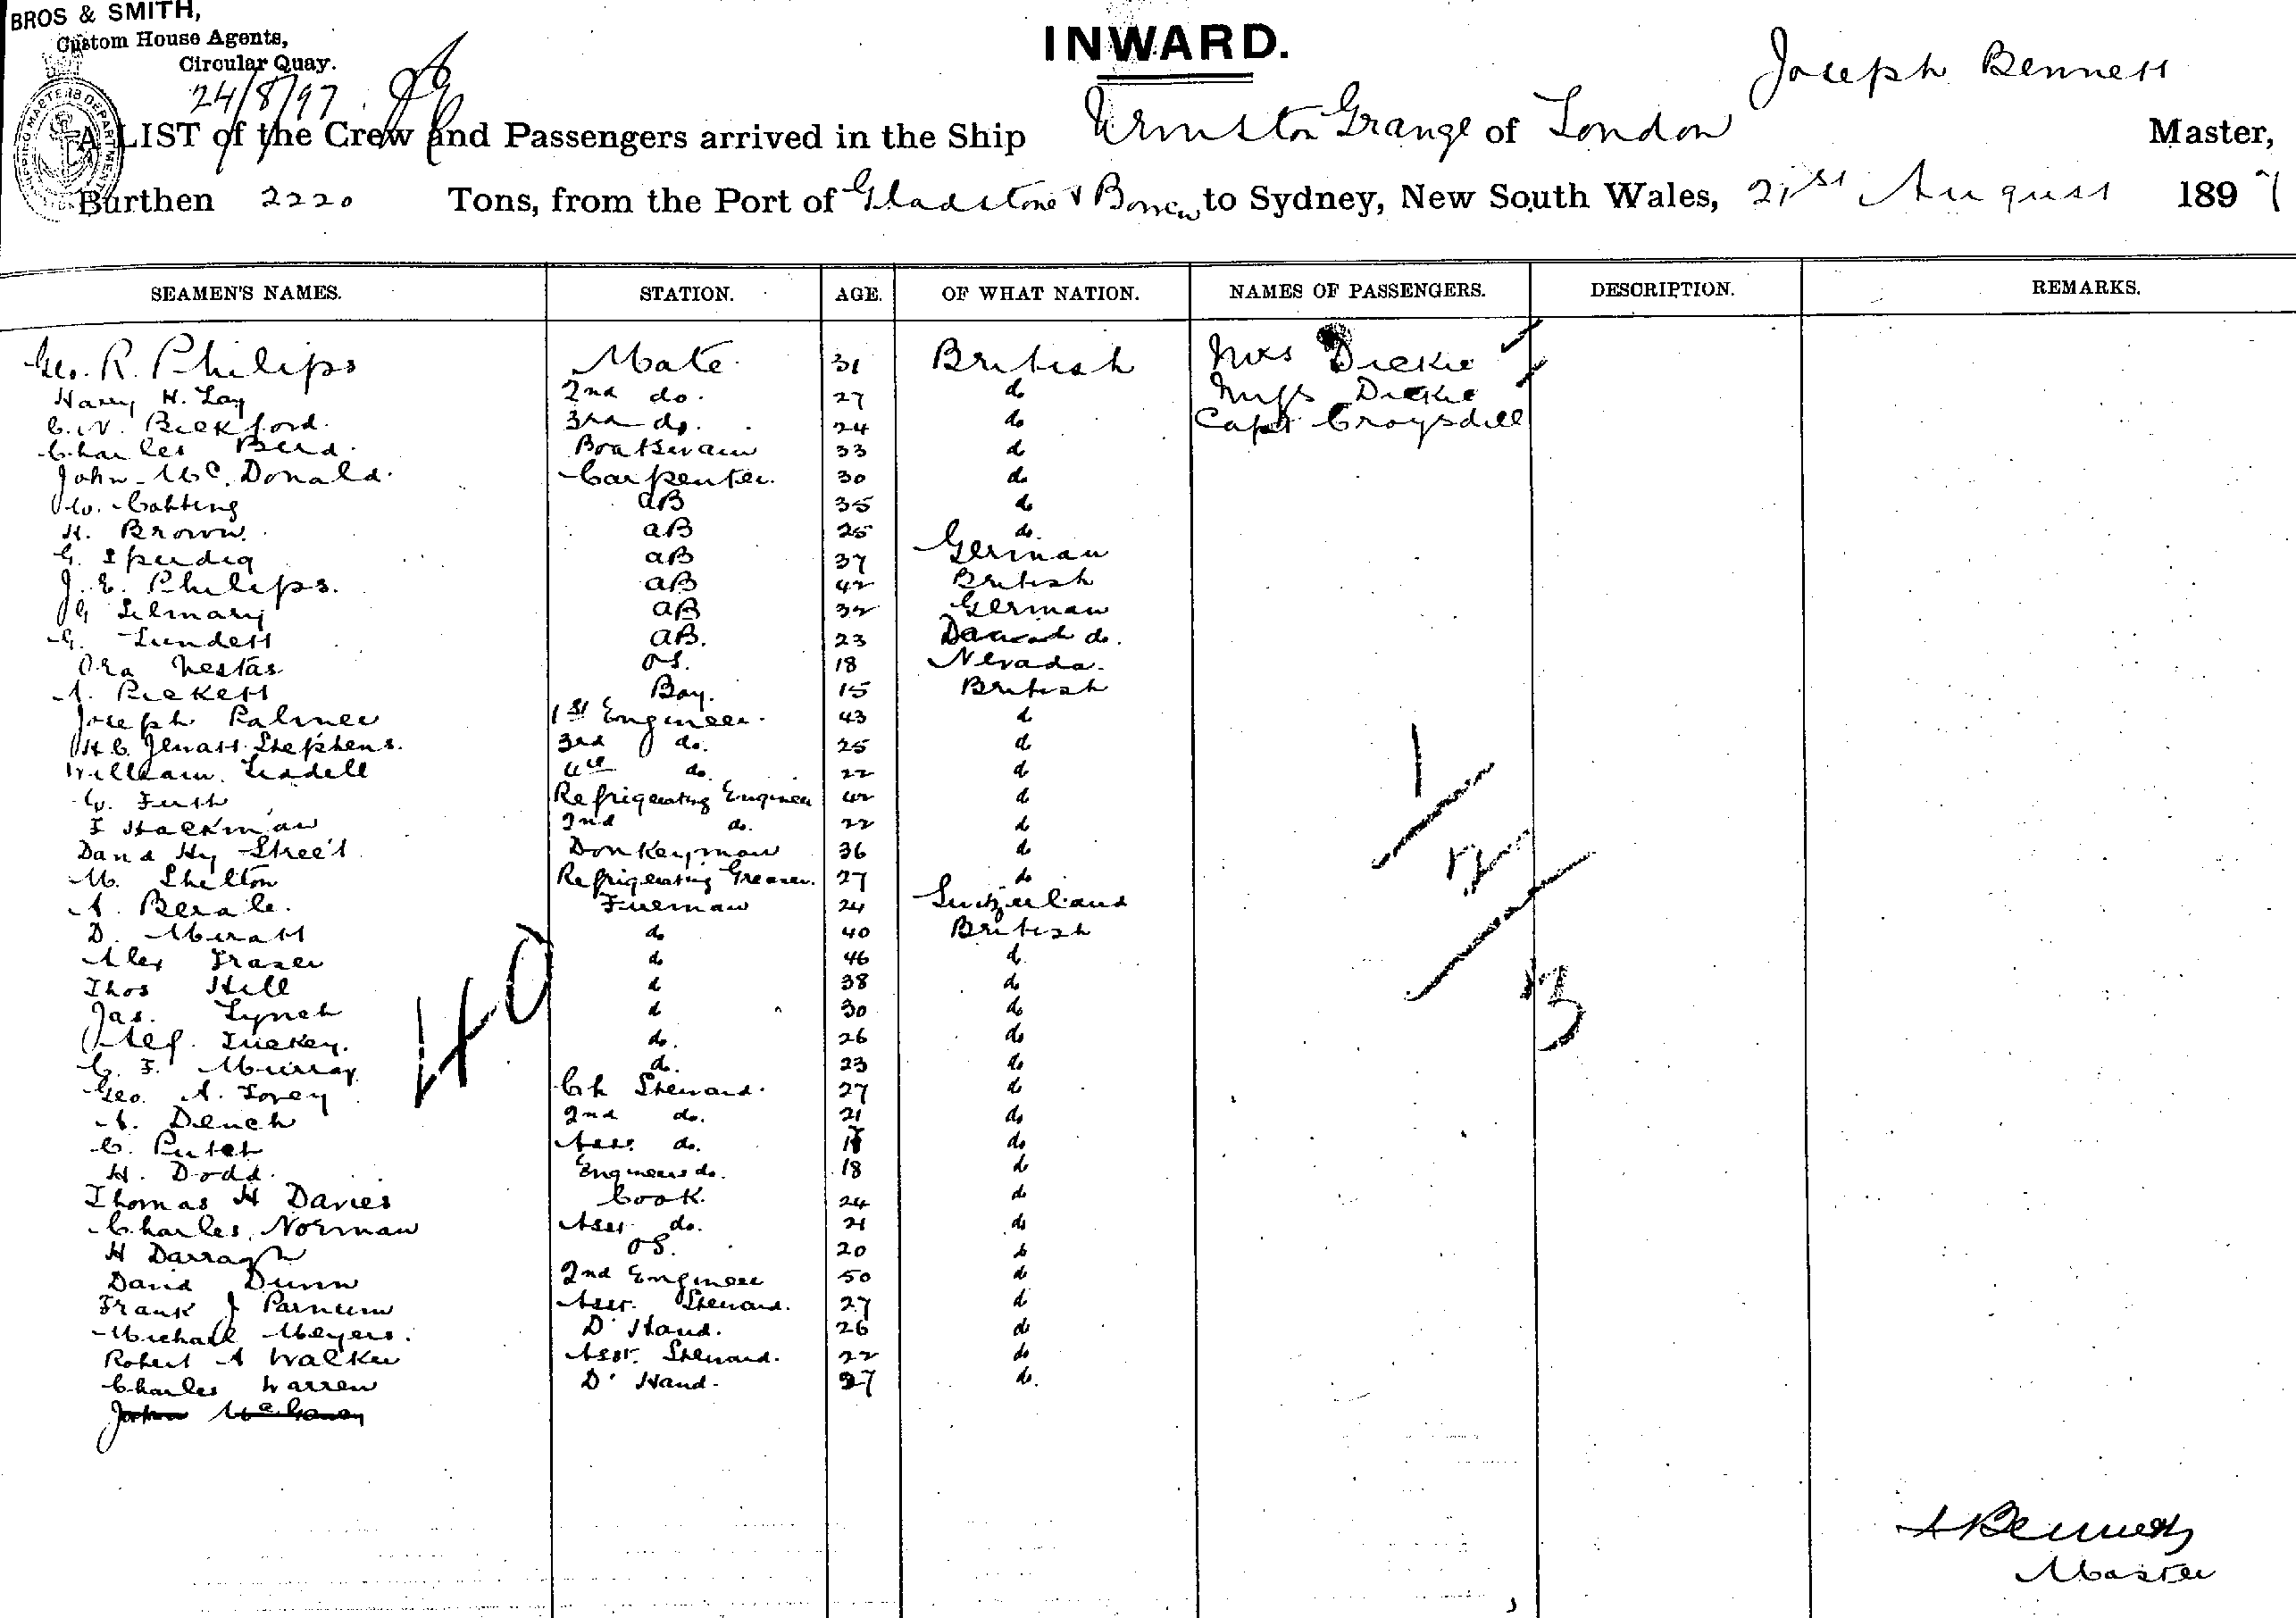 BROS & SMITH,
Custom House Agents,
Circular Quay.
24/8/97
INWARD.
Joseph Bennett
A LIST of the Crew and Passengers arrived in the Ship Urmston Grange of London Master,
Burthen 2220 Tons, from the Port of Gladstone & Bowen to Sydney, New South Wales, 21st August 1897
SEAMEN'S NAMES. STATION. AGE. OF WHAT NATION. NAMES OF PASSENGERS. DESCRIPTION. REMARKS.
Geo. R. Philips Mate. 31 British Mrs Dickie
Harry H. Lay 2nd do. 27 do Miss Dickie
C. W. Bickford. 3rd do. 24 do Capt Croysdill
Charles Bird. Boatswain 33 do
John McDonald. Carpenter. 30 do
W. Cotting AB 35 do
H. Brown. AB 25 do.
G. AB 37 German
J. E. Philips. AB 42 British
G AB 32 German
G. AB. 23 do.
Ora Nestas OS. 18 Nevada.
A. Pickett Boy. 15 British
Joseph Palmer 1st Engineer. 43 do
H C Stephens. 3rd do. 25 do
William Liddell 4th do. 22 do
Refrigerating Engineer 42 do
F Hackman 2nd do. 22 do
David Hy Street Donkeyman 36 do
M. Shelton Refrigerating Greaser. 27 do
A. Fireman 24 Switzerland
D. do 40 British
Alex Fraser do 46 do
Thos Hill do 38 do
Jas. Lynch do 30 do
Tuckey. do. 26 do
C. F. Murray do. 23 do
Geo. A. Tovey Ch Steward. 27 do
A. Dench 2nd do. 21 do
C. Asst. do. do
H. Dodd. Engineers do. 18 do
Thomas H Davies Cook. 24 do
Charles Norman Asst. do. 21 do
H Darragh OS. 20 do
David Dunn 2nd Engineer 50 do
Frank J Parnum Asst. Steward. 27 do
Michael Meyers. D' Hand. 26 do
Robert A Walker Asst. Steward. 22 do
Charles Warren D' Hand. 27 do.
John
40
1
2
3
Bennett
Master